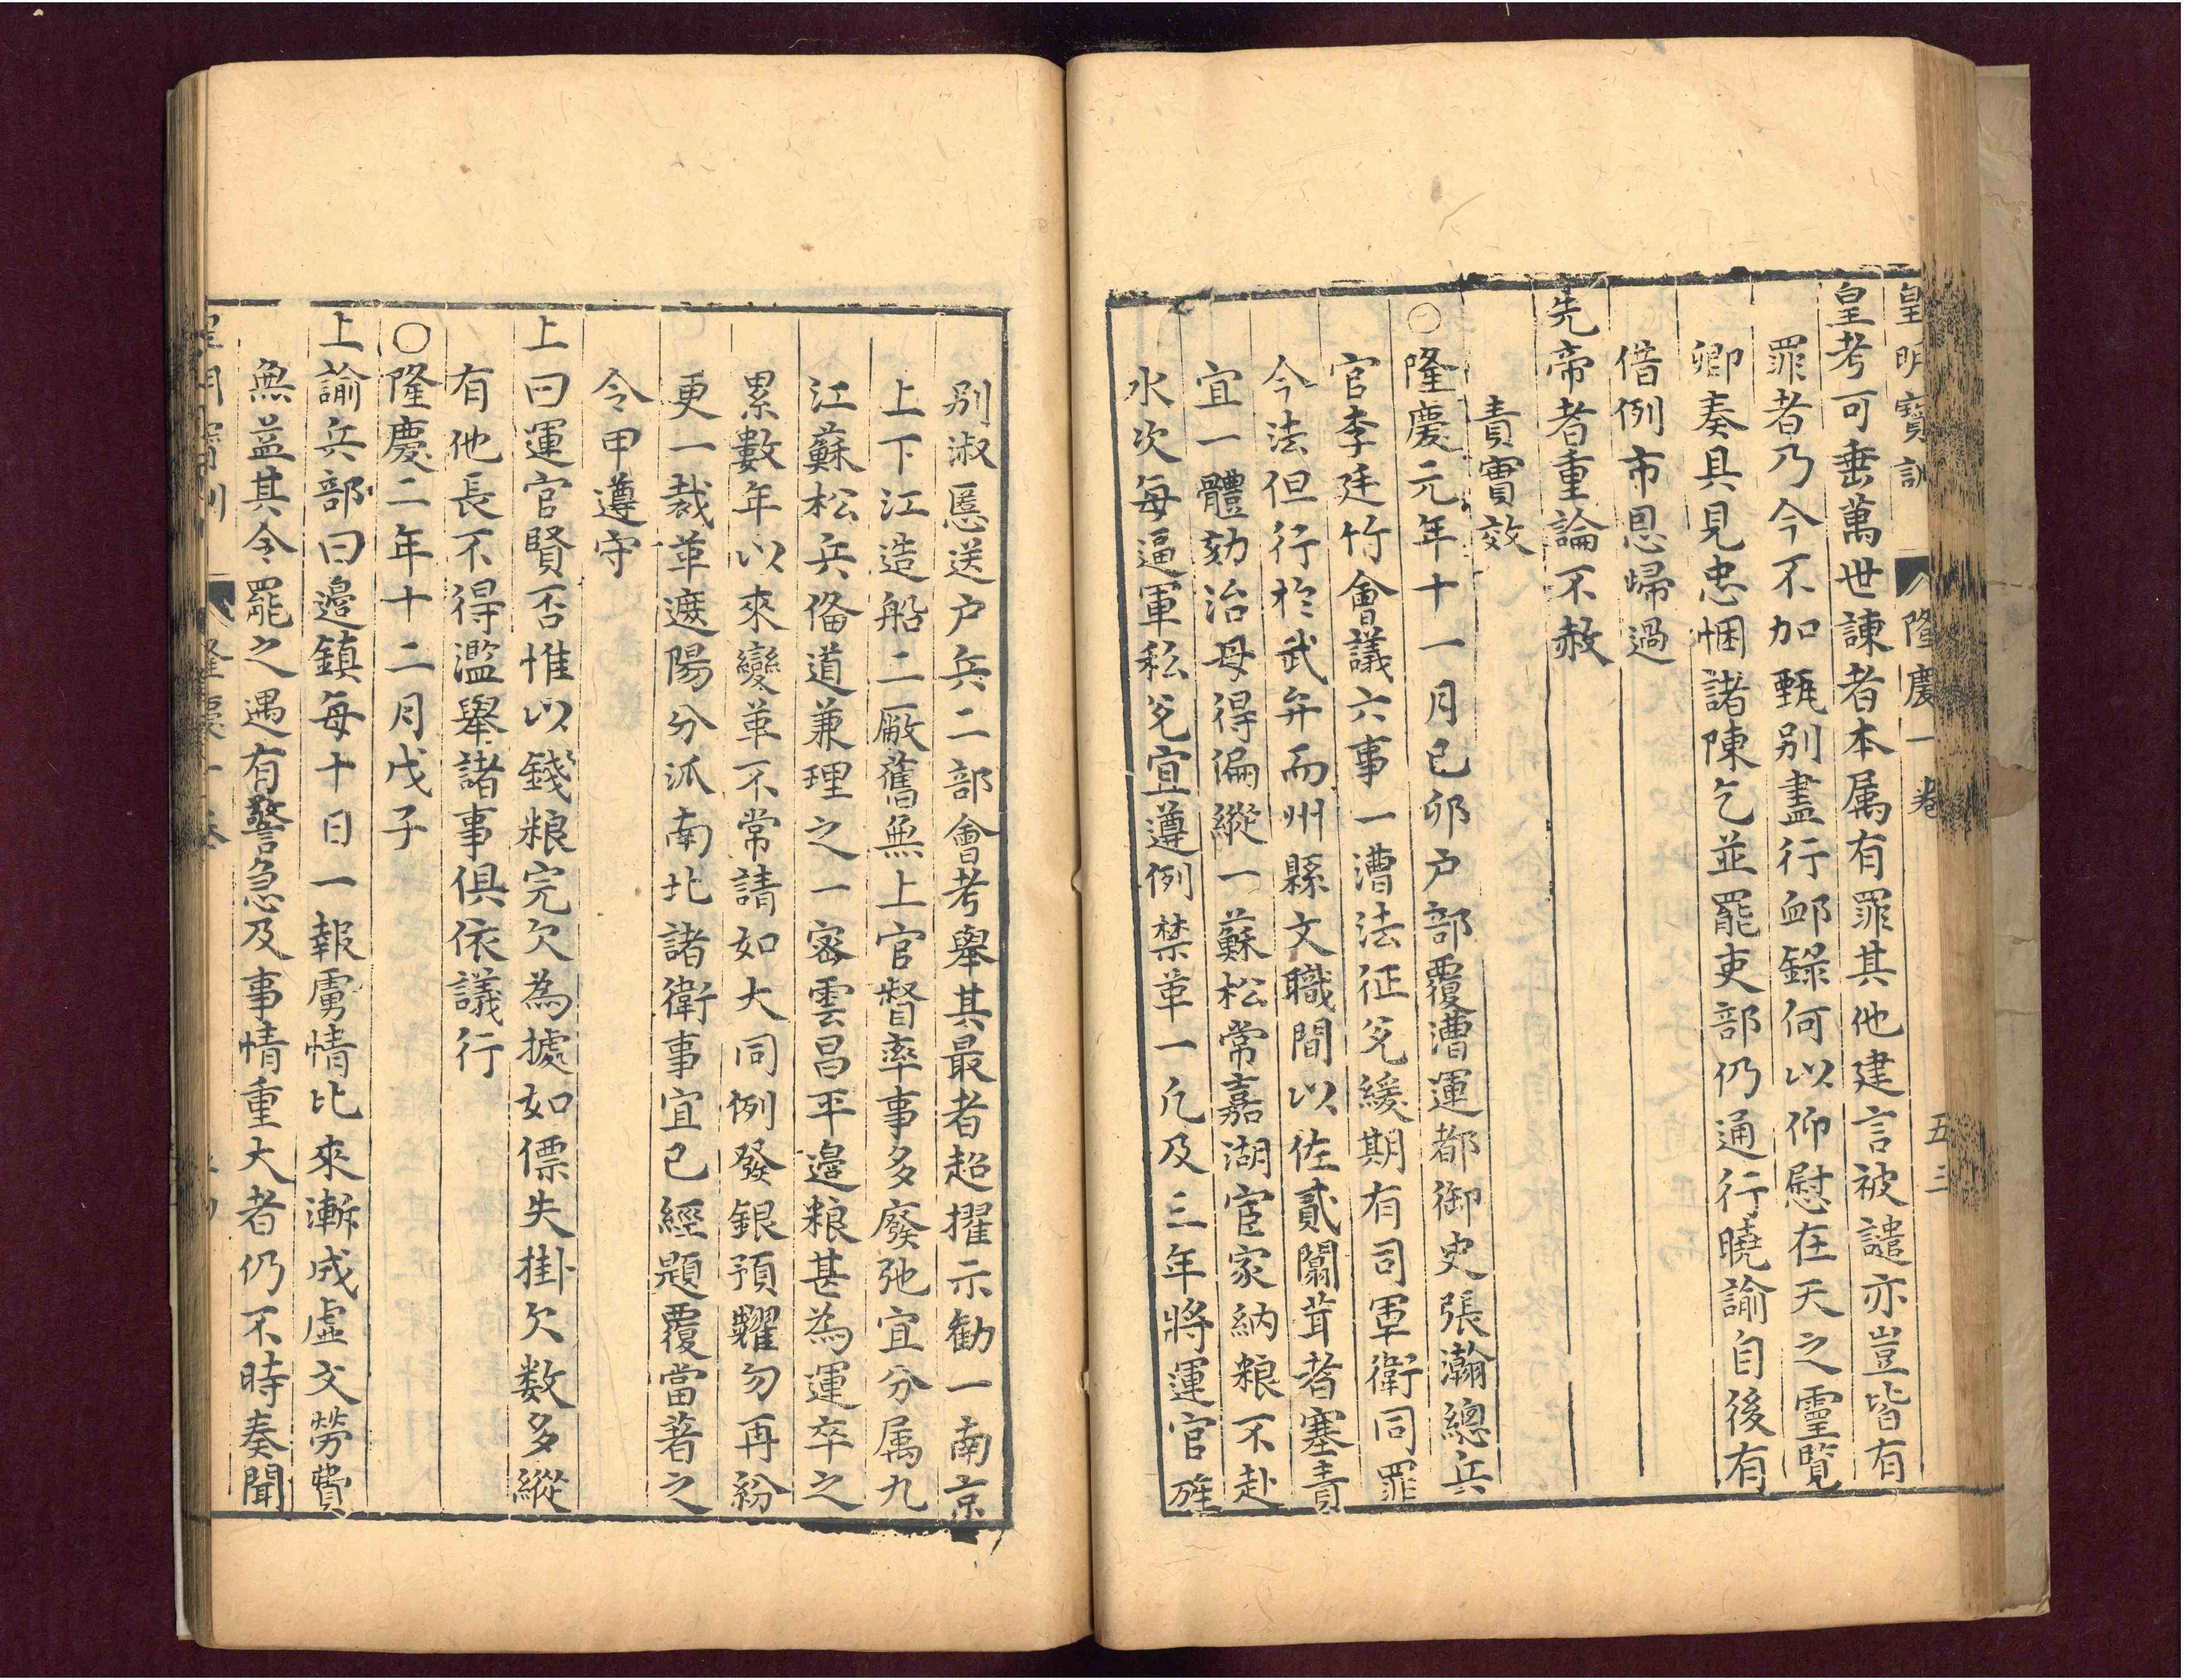 皇明寶訓 隆慶一卷 五三
皇考可垂萬世諫者本属有罪其他建言被譴亦豈皆有
罪者乃今不加甄别盡行䘏錄何以仰慰在天之靈覽
卿奏具見忠悃諸陳乞並罷吏部仍通行曉諭自後有
借例市恩歸過
先帝者重論不赦
責實效
○隆慶元年十一月己卯户部覆漕運都御史張瀚總兵
官李廷竹會議六事一漕法征兊緩期有司軍衛同罪
今法但行於武弁而州縣文職間以佐貳闒茸者塞責
宜一體劾治毋得偏縱一蘇松常嘉湖宦家納粮不赴
水次每逼軍私兊宜遵例禁革一凢及三年將運官旌
别淑慝送户兵二部會考舉其最者超擢示勸一南京
上下江造船二厰舊無上官督率事多廢弛宜分属九
江蘇松兵俻道兼理之一密雲昌平邉粮甚為運卒之
累數年以來變革不常請如大同例發銀預糴勿再紛
更一裁革遮陽分派南北諸衛事宜已經題覆當著之
令甲遵守
上曰運官賢否惟以錢粮完欠為據如漂失掛欠数多縱
有他長不得濫舉諸事俱依議行
○隆慶二年十二月戊子
上諭兵部曰邉鎮每十日一報虜情比來漸成虚文勞費
無益其令罷之遇有警急及事情重大者仍不時奏聞